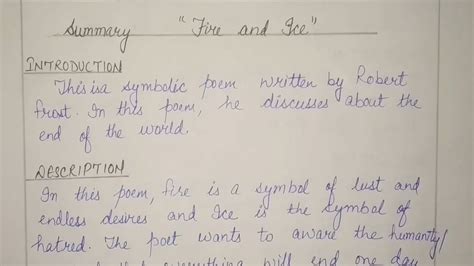 Summary "Fire and Ice"
INTRODUCTION
This is a symbolic poem written by Robert
frost. In this poem, he discusses about the
end of the world.
DESCRIPTION
In this poem, fire is a symbol of lust and
endless desires and Ice is the symbol of
hatred. The poet wants to aware the humanity/
everything will end one day